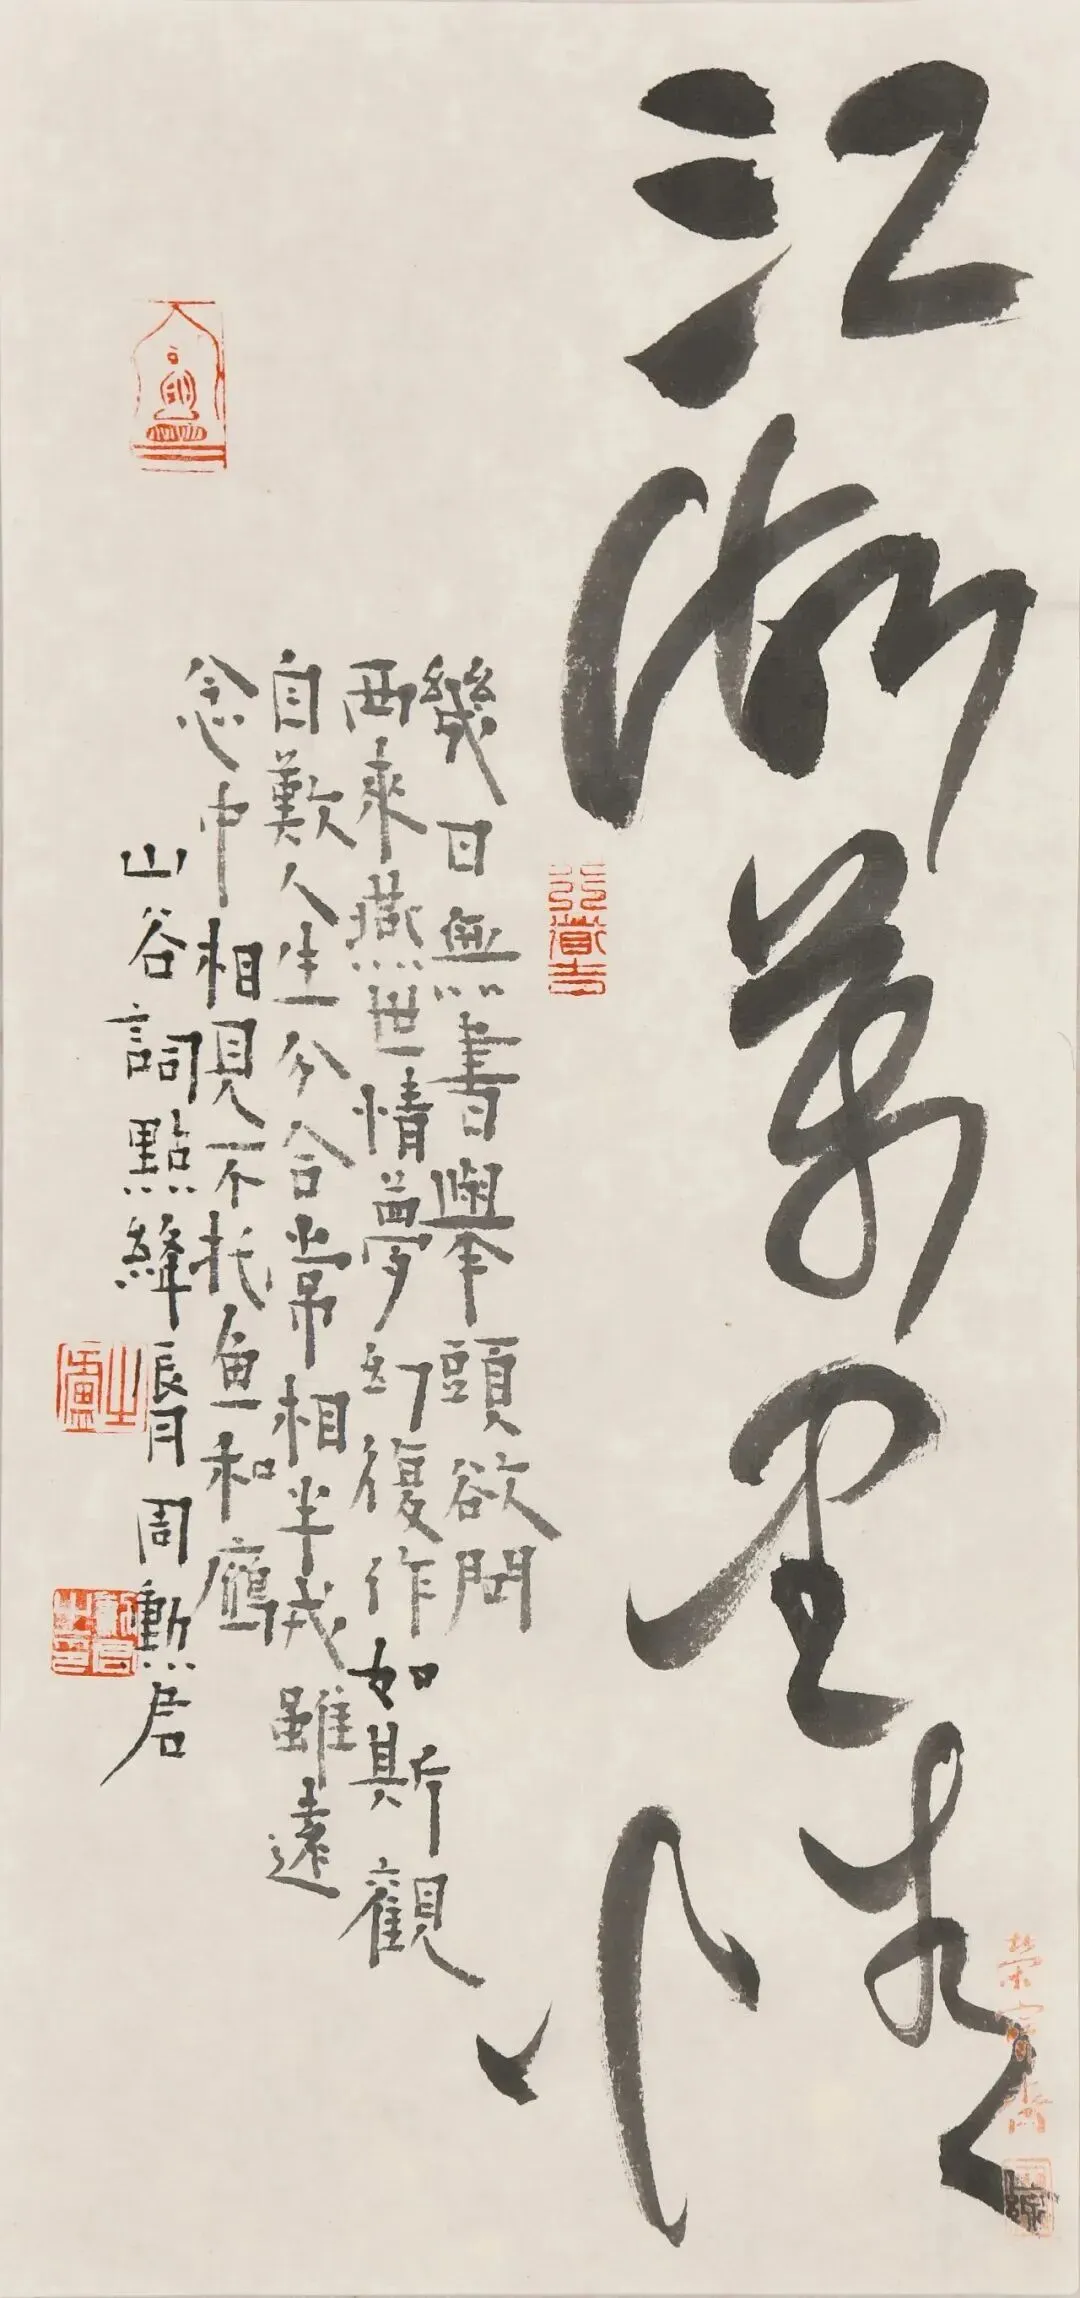 江湖萬里情
幾日無書舉頭欲問
西來燕世情夢幻復作如斯觀
自歎人生分合常相半戎雖遠
念中相見不托魚和鴈
山谷詞點絳脣周勳君
榮寶齋